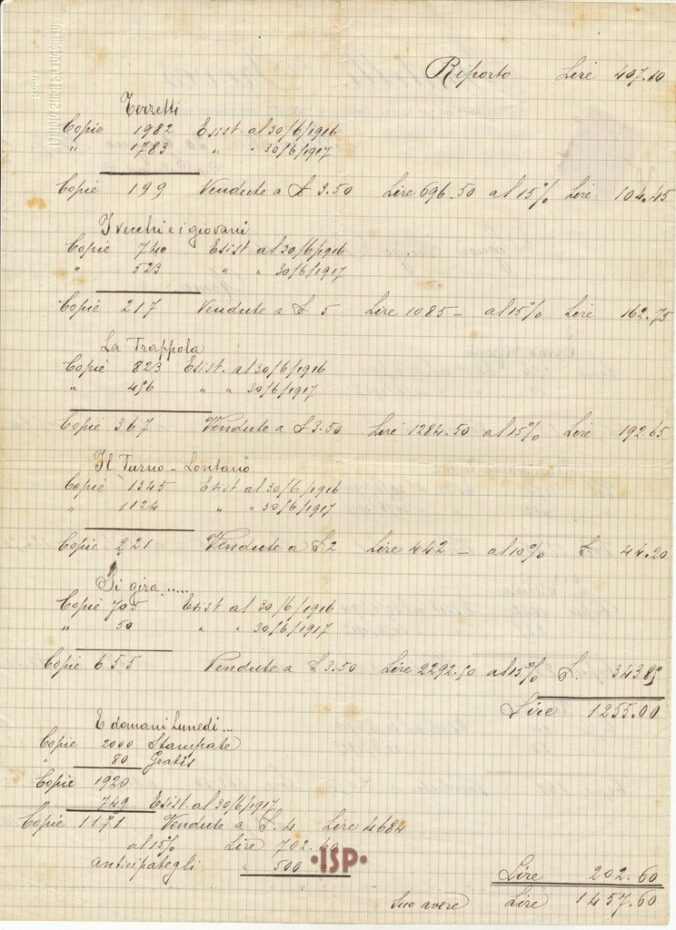 Riporto Lire 407.10
Terzetti
Copie 1982 Esist. al 30/6/1916
" 1783 " " 30/6/1917
Copie 199 Vendute a £ 3.50 Lire 696.50 al 15% Lire 104.45
I vecchi e i giovani
Copie 740 Esist al 30/6/1916
" 523 " " 30/6/1917
Copie 217 Vendute a £ 5 Lire 1085 - al 15% Lire 162.75
La Trappola
Copie 823 Esist. al 30/6/1916
" 456 " " 30/6/1917
Copie 367 Vendute a £ 3.50 Lire 1284.50 al 15% Lire 192.65
Il Turno - Lontano
Copie 1345 Esist al 30/6/1916
" 1124 " " 30/6/1917
Copie 221 Vendute a £ 2 Lire 442 - al 10% £ 44.20
Si gira.....
Copie 705 Esist al 30/6/1916
" 50 " " 30/6/1917
Copie 655 Vendute a £ 3.50 Lire 2292.50 al 15% £. 343.85
Lire 1255.00
E domani Lunedì...
Copie 2000 Stampate
" 80 Gratis
Copie 1920
" 749 Esist al 30/6/1917
Copie 1171 Vendute a £. 4 Lire 4684
al 15% Lire 702.60
anticipategli " 500
•ISP•
Lire 202.60
Suo avere Lire 1457.60